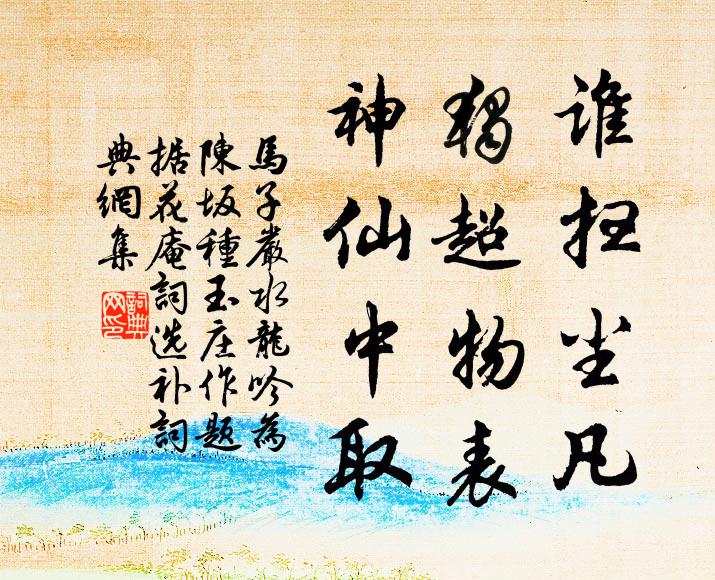 谁扫尘凡
独超物表
神仙中取
馬子嚴水龍吟為
陳坂種玉庄作題
据花庵詞选补詞
典網集
詞典
网印